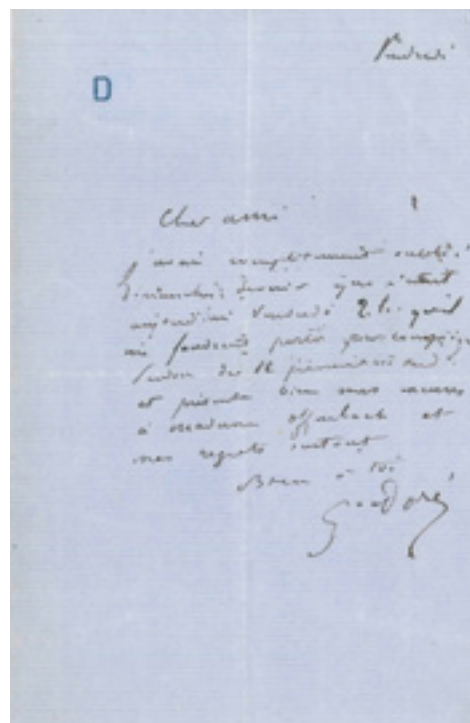 Vendredi
D
Cher ami
j'avais complètement oublié
Dimanche dernier que c'était
aujourd'hui Vendredi 2 h. qu'il
me faudrait partir pour
et présente bien mes excuses
à Madame Offenbach et
mes regrets surtout
Bien à toi
Gve Doré